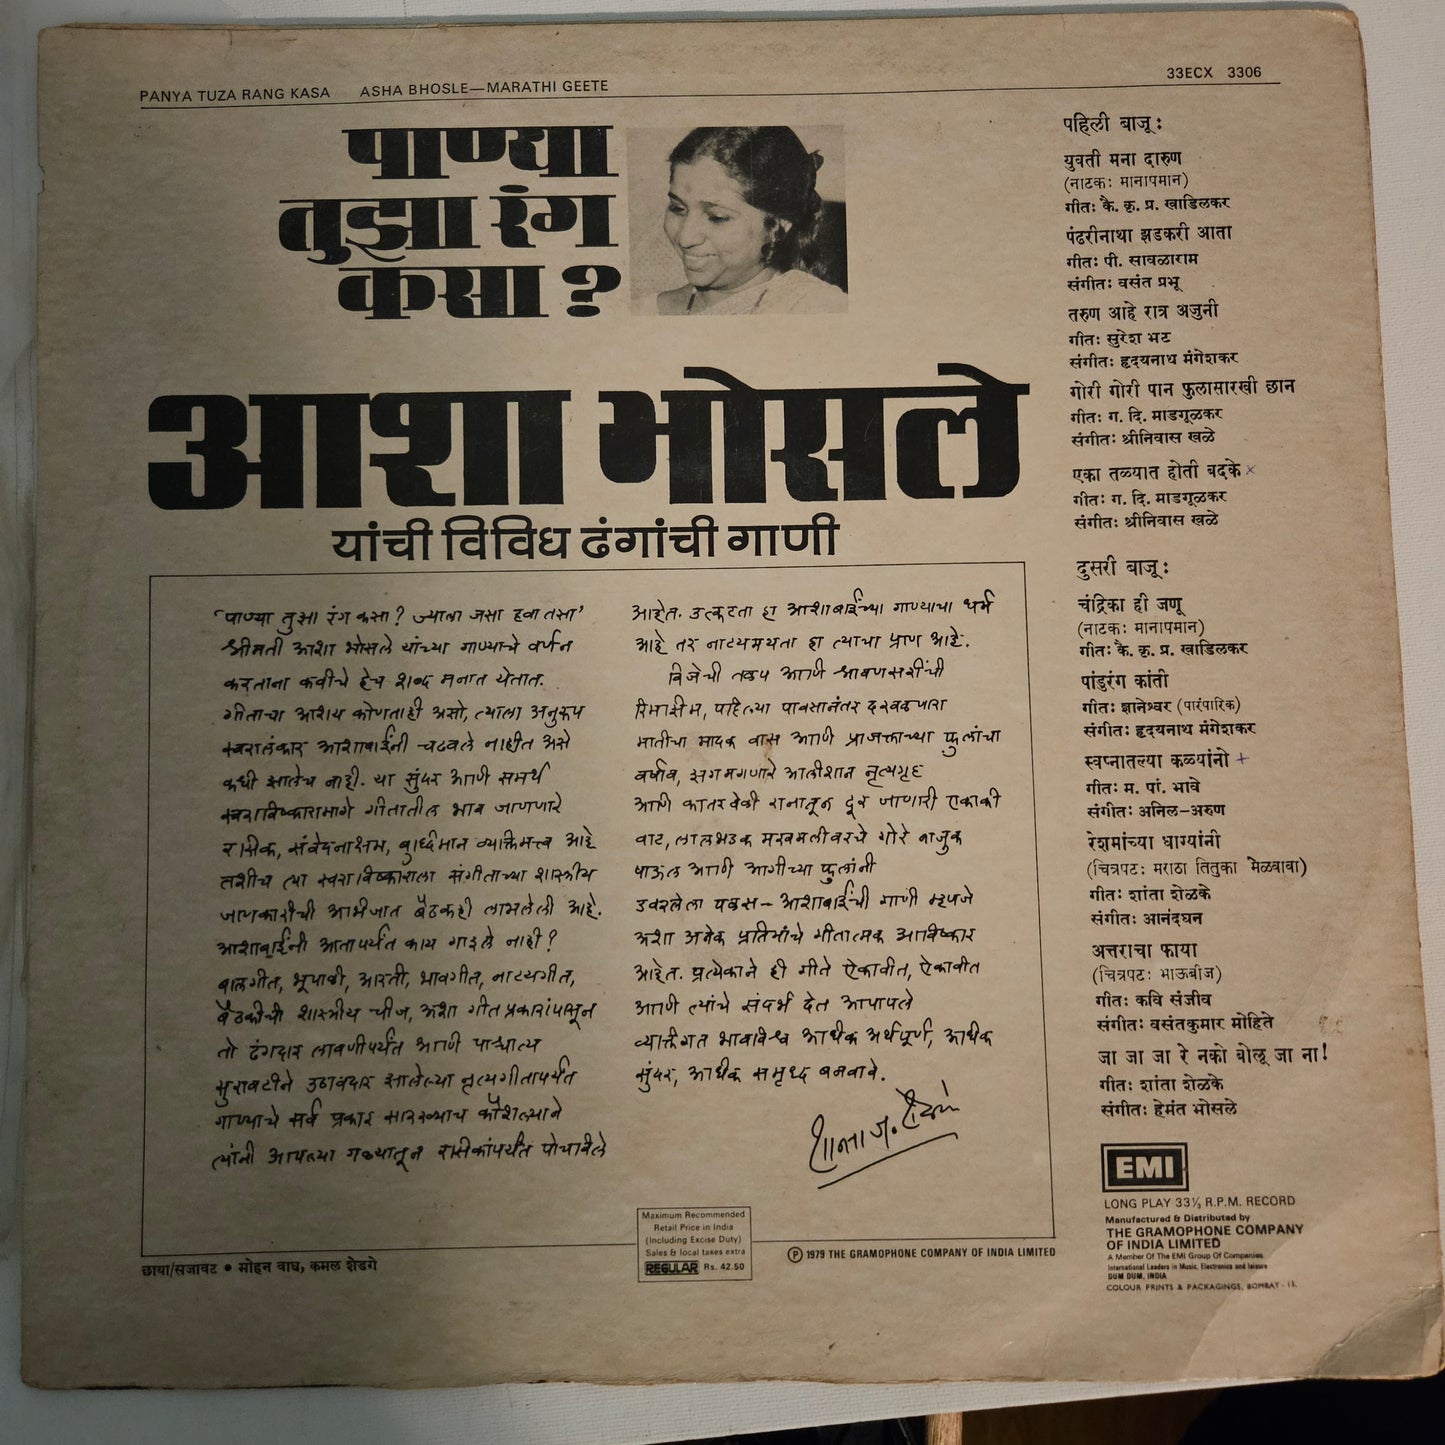 PANYA TUZA RANG KASA ASHA BHOSLE—MARATHI GEETE
33ECX 3306
पाण्या
तुझा रंग
कसा ?
आशा भोसले
यांची विविध ढंगांची गाणी
‘पाण्या तुझा रंग कसा? ज्याला जसा हवा तसा’
श्रीमती आशा भोसले यांच्या गाण्याचे वर्णन
करताना कवीचे हेच शब्द मनात येतात.
गीताचा आशय कोणताही असो, त्याला अनुरूप
स्वरालंकार आशाबाईंनी चढवले नाहीत असे
कधी झालेच नाही. या सुंदर आणि समर्थ
स्वराविष्कारामागे गीतातील भाव जाणणारे
रसिक, संवेदनाक्षम, बुध्दिमान व्यक्तिमत्त्व आहे
तशीच त्या स्वराविष्काराला संगीताच्या शास्त्रीय
जाणकारीची अभिजात बैठकही लाभलेली आहे.
आशाबाईंनी आतापर्यंत काय गाइले नाही?
बालगीत, भूपाळी, आरती, भावगीत, नाट्यगीत,
बैठकीची शास्त्रीय चीज, अशा गीत प्रकारांपासून
तो ढंगदार लावणीपर्यंत आणि पाश्चात्य
सुरावटीने उठावदार झालेल्या नृत्यगीतापर्यंत
गाण्याचे सर्व प्रकार सारख्याच कौशल्याने
त्यांनी आपल्या गळ्यातून रसिकांपर्यंत पोचविले
आहेत. उत्कटता हा आशाबाईंच्या गाण्याचा धर्म
आहे तर नाट्यमयता हा त्याचा प्राण आहे.
विजेची तळप आणि श्रावणसरींची
रिमझिम, पहिल्या पावसानंतर दरवळणारा
मातीचा मादक वास आणि प्राजक्ताच्या फुलांचा
वर्षाव, झगमगणारे आलीशान नृत्यगृह
आणि कातरवेळी रानातून दूर जाणारी एकाकी
वाट, लालभडक मखमलीवरचे गोरे नाजुक
पाऊल आणि आगीच्या फुलांनी
डवरलेला पळस – आशाबाईंची गाणी म्हणजे
अशा अनेक प्रतिमांचे गीतात्मक आविष्कार
आहेत. प्रत्येकाने ही गीते ऐकावीत, ऐकावीत
आणि त्यांचे संदर्भ देत आपापले
व्यक्तिगत भावविश्व अधिक अर्थपूर्ण, अधिक
सुंदर, अधिक समृध्द बनवावे.
शान्ता ज. शेळके
पहिली बाजू :
युवती मना दारुण
(नाटक: मानापमान)
गीत: कै. कृ. प्र. खाडिलकर
पंढरीनाथा झडकरी आता
गीत: पी. सावळाराम
संगीत: वसंत प्रभू
तरुण आहे रात्र अजुनी
गीत: सुरेश भट
संगीत: हृदयनाथ मंगेशकर
गोरी गोरी पान फुलासारखी छान
गीत: ग. दि. माडगूळकर
संगीत: श्रीनिवास खळे
एका तळ्यात होती बदके ×
गीत: ग. दि. माडगूळकर
संगीत: श्रीनिवास खळे
दुसरी बाजू :
चंद्रिका ही जणू
(नाटक: मानापमान)
गीत: कै. कृ. प्र. खाडिलकर
पांडुरंग कांती
गीत: ज्ञानेश्वर (पारंपारिक)
संगीत: हृदयनाथ मंगेशकर
स्वप्नातल्या कळ्यांनो +
गीत: म. पां. भावे
संगीत: अनिल–अरुण
रेशमांच्या धाग्यांनी
(चित्रपट: मराठा तितुका मेळवावा)
गीत: शांता शेळके
संगीत: आनंदघन
अत्तराचा फाया
(चित्रपट: भाऊबीज)
गीत: कवि संजीव
संगीत: वसंतकुमार मोहिते
जा जा जा रे नको बोलू जा ना!
गीत: शांता शेळके
संगीत: हेमंत भोसले
EMI
LONG PLAY 33⅓ R.P.M. RECORD
Manufactured & Distributed by
THE GRAMOPHONE COMPANY
OF INDIA LIMITED
A Member Of The EMI Group Of Companies
International Leaders in Music, Electronics and leisure
DUM DUM, INDIA
COLOUR PRINTS & PACKAGINGS, BOMBAY - 13.
Maximum Recommended
Retail Price in India
(Including Excise Duty)
Sales & local taxes extra
REGULAR Rs. 42.50
Ⓟ 1979 THE GRAMOPHONE COMPANY OF INDIA LIMITED
छाया/सजावट ● मोहन वाघ, कमल शेडगे